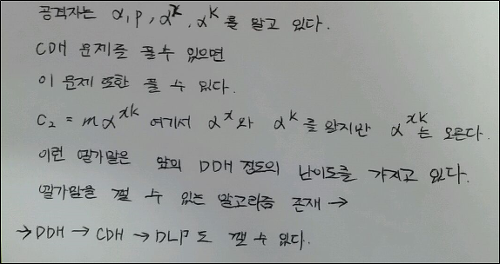 공격자는 α, p, α^x, α^k 를 알고 있다.
CDH 문제를 풀수 있으면
이 문제 또한 풀 수 있다.
C₂ = mα^xk 여기서 α^x 와 α^k 를 알지만 α^xk 는 모른다.
이런 엘가말은 앞의 DDH 정도의 난이도를 가지고 있다.
엘가말을 깰 수 있는 알고리즘 존재 →
→ DDH → CDH → DLP 도 깰 수 있다.